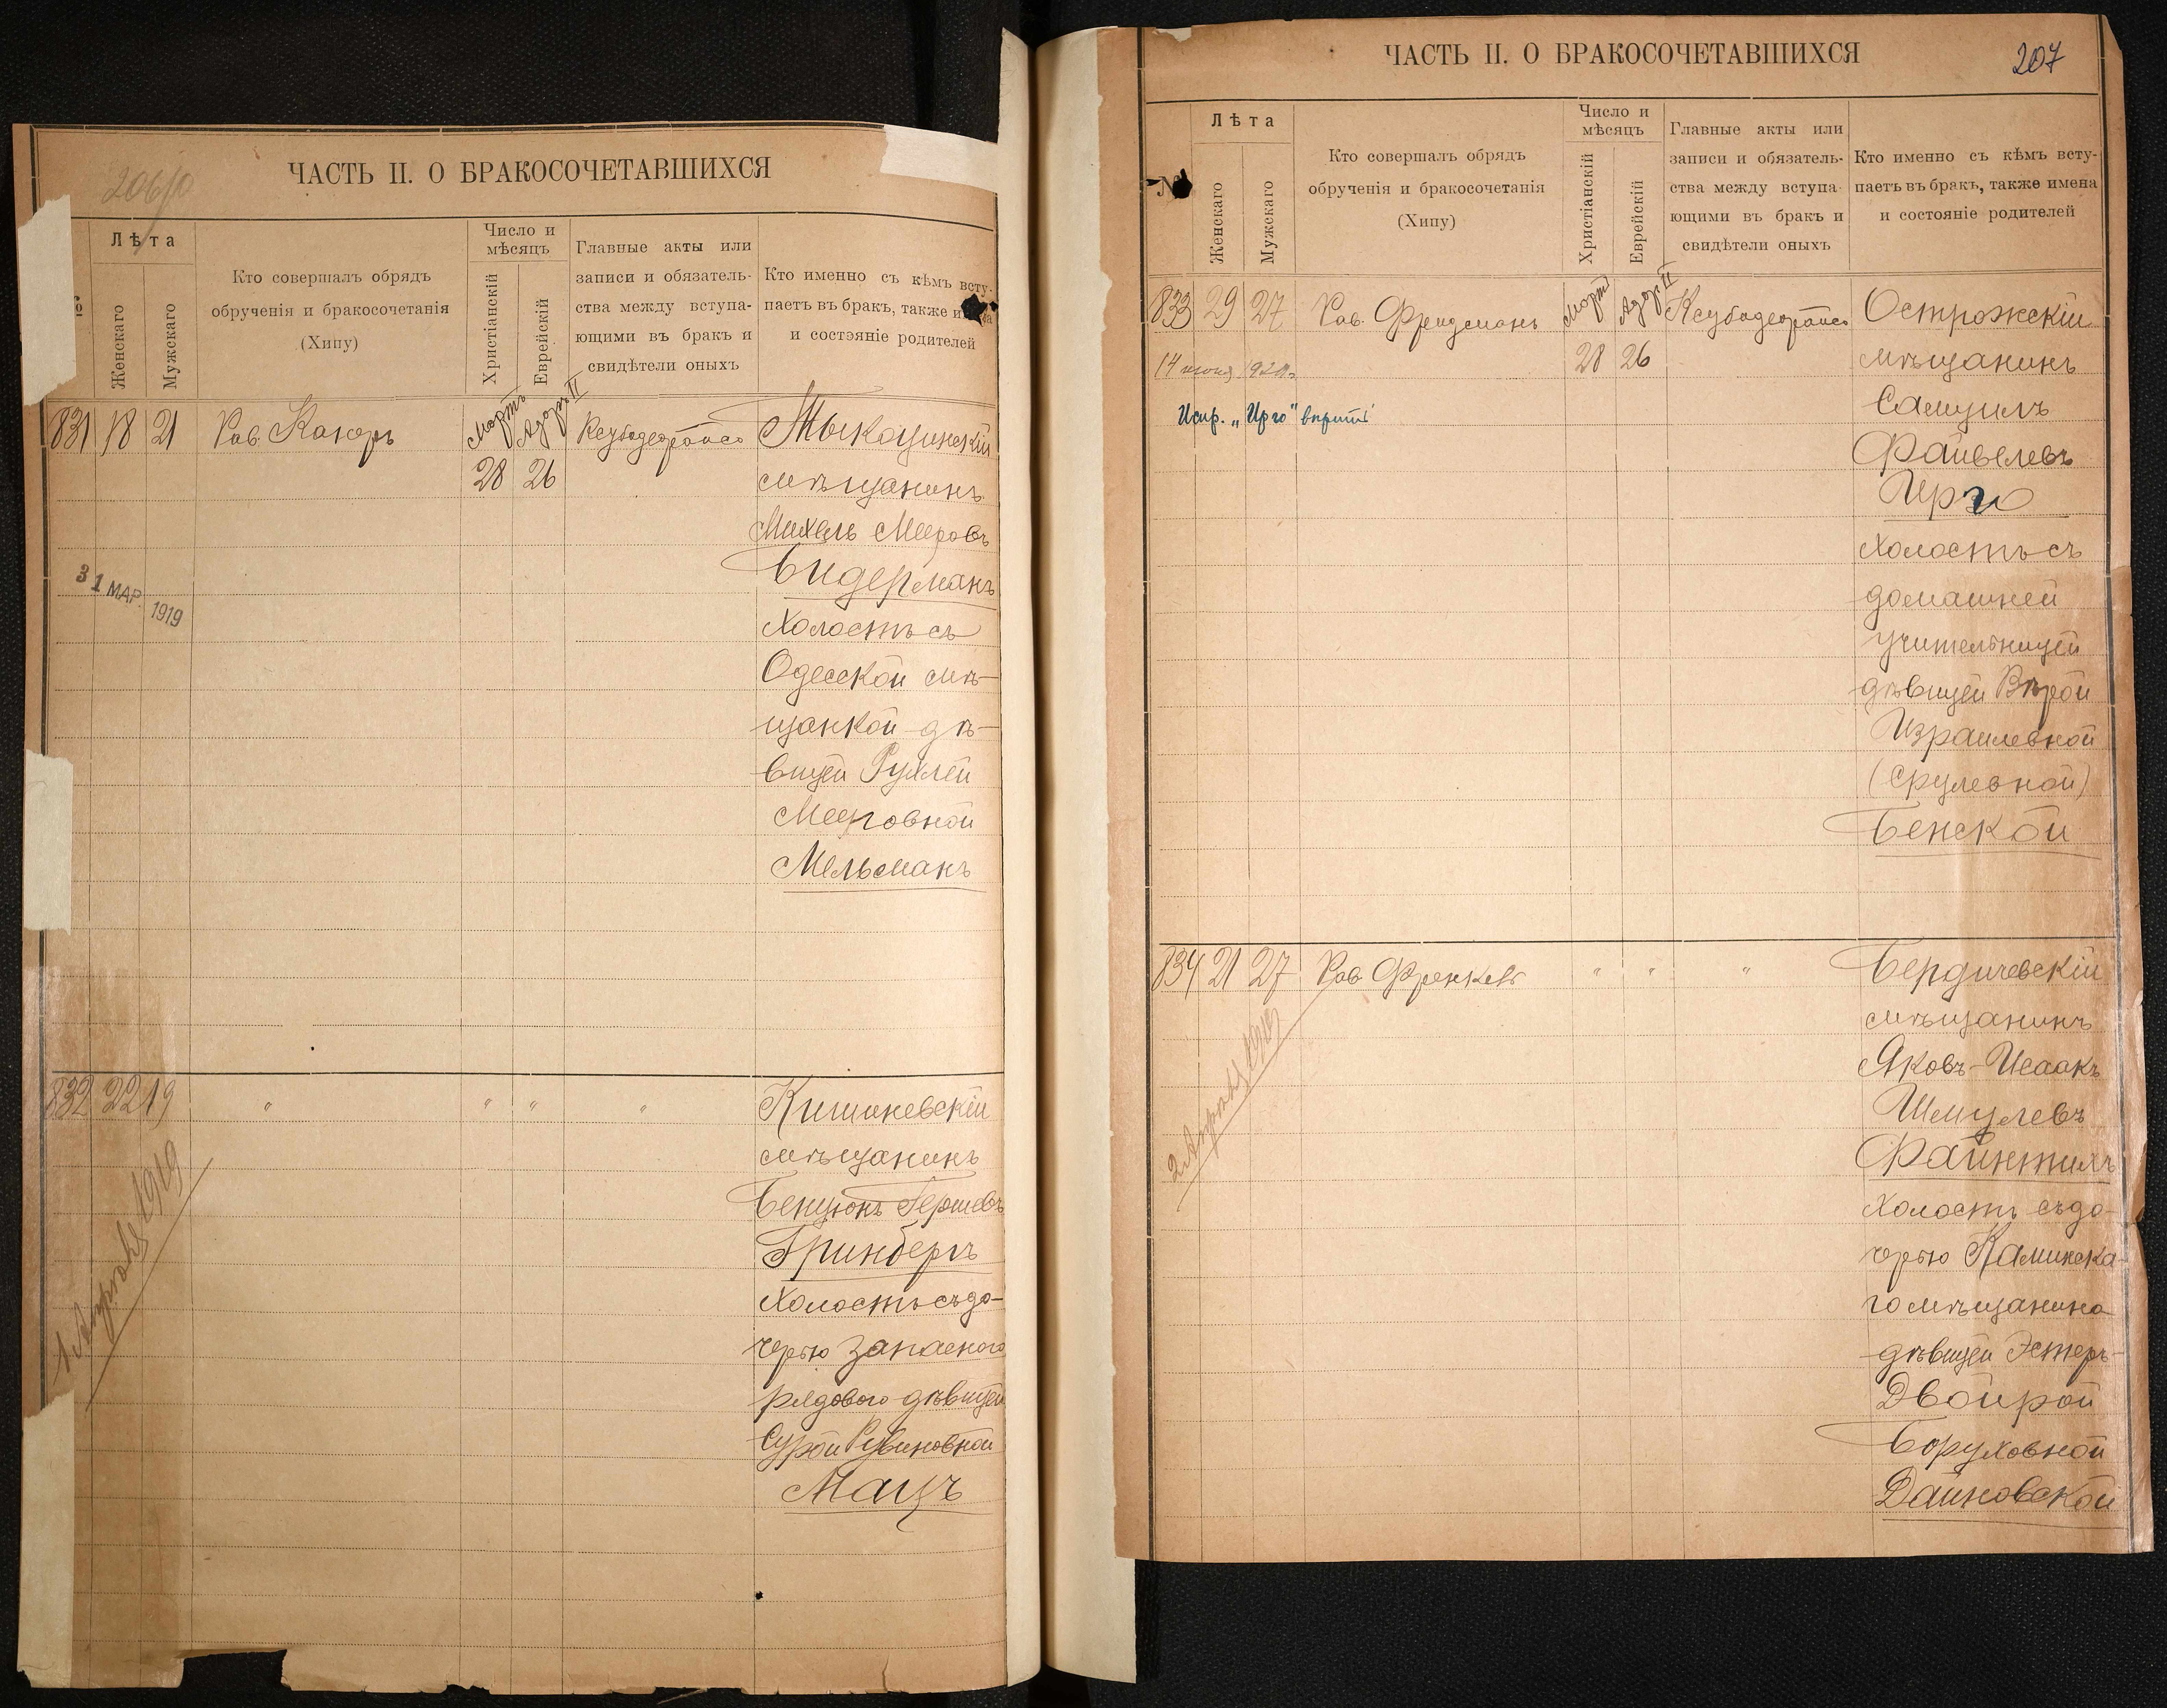 206/об
ЧАСТЬ II. О БРАКОСОЧЕТАВШИХСЯ
№
Лѣта
Женскаго
Мужскаго
Кто совершалъ обрядъ
обрученія и бракосочетанія
(Хипу)
Число и
мѣсяцъ
Христіанскій
Еврейскій
Главные акты или
записи и обязатель-
ства между вступа-
ющими въ бракъ и
свидѣтели оныхъ
Кто именно съ кѣмъ всту-
паетъ въ бракъ, также имена
и состояніе родителей
831 18 21 Рав. Кагеръ Мартъ Адаръ II
28 26
Тыкоцинскій
мѣщанинъ
Михель Мееровъ
Бидерманъ
холостъ съ
Одесской мѣ-
щанкой дѣ-
вицей Рухлей
Мееровной
Мельманъ
31 МАР. 1919
832 22 19 " " " "
Кишиневскій
мѣщанинъ
Бенціонъ Гершевъ
Гринбергъ
холостъ съ до-
черью запасного
рядового дѣвицей
Сурой Рувиновной
Мацъ
1 Апрѣля 1919
ЧАСТЬ II. О БРАКОСОЧЕТАВШИХСЯ
207
№
Лѣта
Женскаго
Мужскаго
Кто совершалъ обрядъ
обрученія и бракосочетанія
(Хипу)
Число и
мѣсяцъ
Христіанскій
Еврейскій
Главные акты или
записи и обязатель-
ства между вступа-
ющими въ бракъ и
свидѣтели оныхъ
Кто именно съ кѣмъ всту-
паетъ въ бракъ, также имена
и состояніе родителей
833 29 27 Рав. Фридманъ Мартъ Адаръ II
28 26
14 июня 1920 г.
Испр. „Ирго" вѣрить
Острожскій
мѣщанинъ
Самуилъ
Файвелевъ
Ирго
холостъ съ
домашней
учительницей
дѣвицей Вѣрой
Израилевной
(Срулевной)
Бенской
834 21 27 Рав. Френкель " " "
Бердичевскій
мѣщанинъ
Яковъ-Исаакъ
Шмулевъ
Файнтихъ
холостъ съ до-
черью Каминска-
го мѣщанина
дѣвицей Эстеръ-
Двойрой
Боруховной
Дайновской
2 Апрѣля 1919